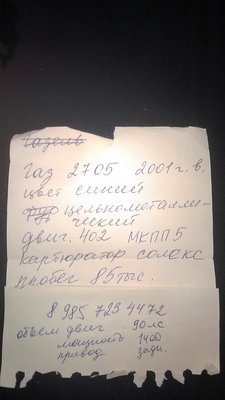 Газель
Газ 2705 2001 г. в.
цвет синий
цельнометалли-
ческий
двиг. 402 МКПП5
картюратор солекс
пробег 85 тыс.
8 985 723 4472
объем двиг. 90 лс
мощность 1400
привод задн.